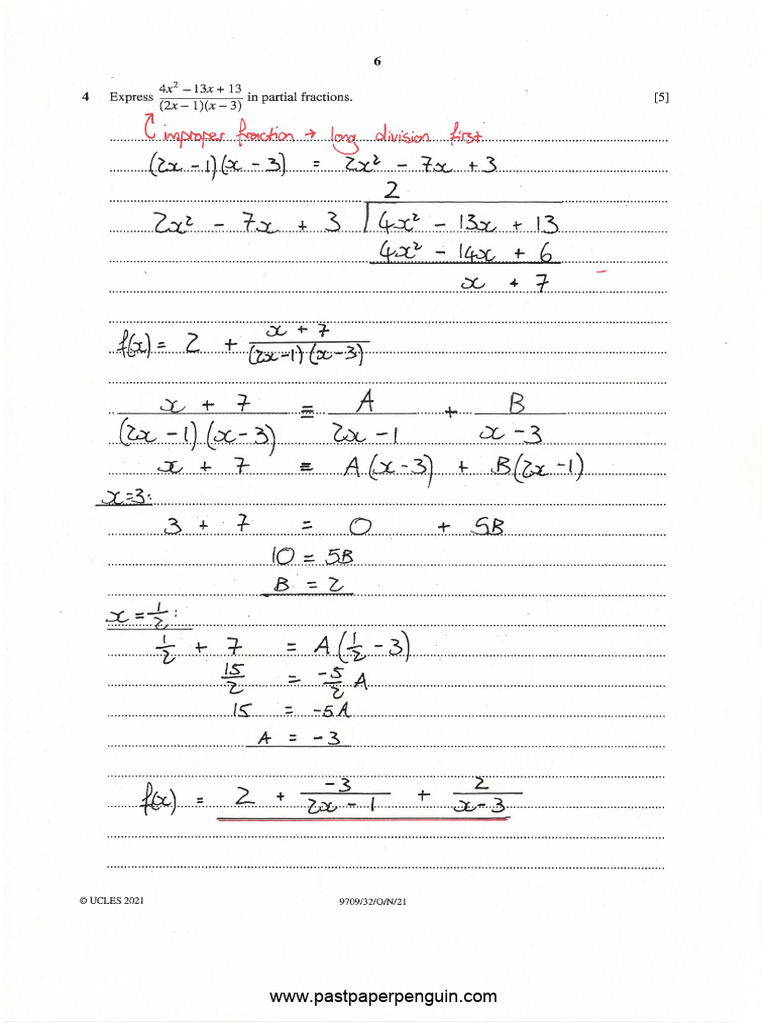 6
4 Express (4x² − 13x + 13)/((2x − 1)(x − 3)) in partial fractions. [5]
improper fraction → long division first
(2x − 1)(x − 3) = 2x² − 7x + 3
2
2x² − 7x + 3 4x² − 13x + 13
4x² − 14x + 6
x + 7
f(x) = 2 + (x + 7)/((2x−1)(x−3))
(x + 7)/((2x − 1)(x − 3)) ≡ A/(2x − 1) + B/(x − 3)
x + 7 ≡ A(x−3) + B(2x−1)
x=3:
3 + 7 = 0 + 5B
10 = 5B
B = 2
x = 1/2 :
1/2 + 7 = A(1/2 − 3)
15/2 = −5/2 A
15 = −5A
A = −3
f(x) = 2 + −3/(2x − 1) + 2/(x−3)
© UCLES 2021 9709/32/O/N/21
www.pastpaperpenguin.com